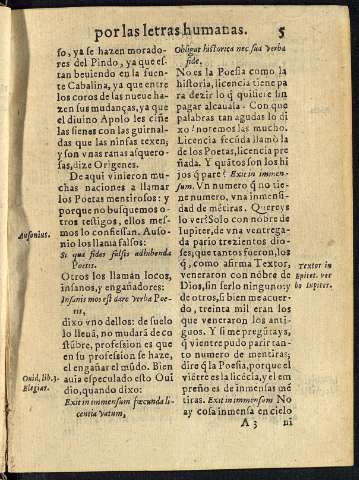 por las letras humanas. 5
so, ya se hazen morado-
res del Pindo, ya que es-
tan beuiendo en la fuen-
te Cabalina, ya que entre
los coros de las nueue ha-
zen sus mudanças, ya que
el diuino Apolo les ciñe
las sienes con las guirnal-
das que las ninfas texen;
y son vnas ranas asquero-
sas, dize Origenes.
De aqui vinieron mu-
chas naciones a llamar
los Poetas mentirosos: y
porque no busquemos o-
tros testigos, ellos mes-
mos lo confiessan. Auso-
nio los llama falsos:
Ausonius.
Si qua fides falsis adhibenda
Poetis.
Otros los llamã locos,
insanos, y engañadores:
Insanis mos est dare verba Poe-
tis,
dixo vno dellos: de suelo
lo lleuã, no mudará de co-
stũbre, profession es que
en su profession se haze,
el engañar el mũdo. Bien
auia especulado esto Oui
dio, quando dixo:
Ouid. lib. 3.
Elegiar.
Exit in immensum fœcunda li-
centia vatum,
Obligat historica nec sua verba
fide.
No es la Poesia como la
historia, licencia tiene pa
ra dezir lo q̃ quisiere sin
pagar alcauala. Con que
palabras tan agudas lo di
xo! notemos las mucho.
Licencia fecũda llamò la
de los Poetas, licencia pre
ñada. Y quãtos son los hi
jos q̃ pare? Exit in immen-
sum. Vn numero q̃ no tie-
ne numero, vna inmensi-
dad de mẽtiras. Quereys
lo ver? Solo con nõbre de
Iupiter, de vna ventrega-
da pario trezientos dio-
ses, que tantos fueron, los
q̃, como afirma Textor,
veneraron con nõbre de
Dios, sin serlo ninguno: y
de otros, si bien me acuer-
do, treinta mil eran los
que veneraron los anti-
guos. Y si me pregũtays,
q̃ vientre pudo parir tan-
to numero de mentiras;
dire q̃ la Poesia, porque el
viẽtre es la licẽcia, y el em
preño es de inmensas mẽ
tiras. Exit in immensum. No
ay cosa inmensa en cielo
Textor in
Epitet. ver
bo Iupiter.
A 3 ni